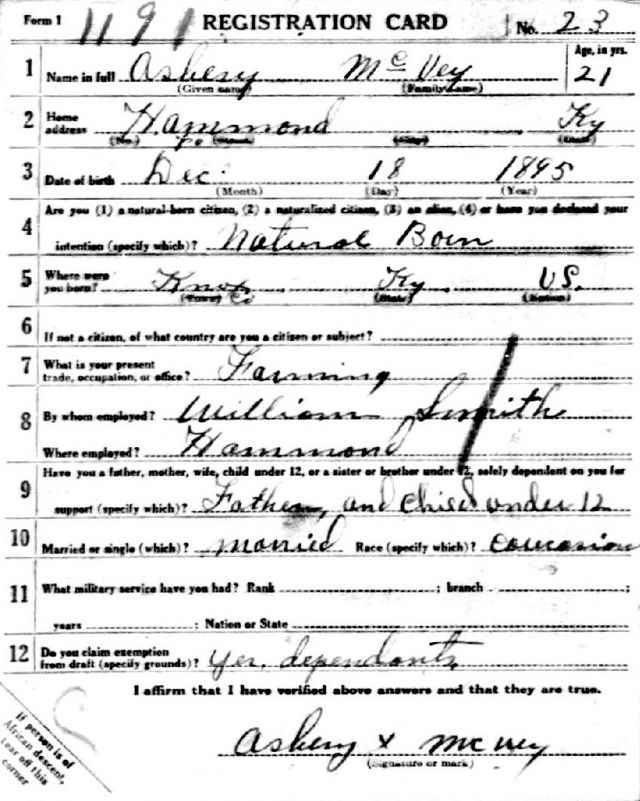 Form 1 1191 REGISTRATION CARD No. 23
1 Name in full Asbery McVey Age, in yrs. 21
(Given name) (Family name)
2 Home address Hammond Ky
(No.) (Street) (City) (State)
3 Date of birth Dec. 18 1895
(Month) (Day) (Year)
4 Are you (1) a natural-born citizen, (2) a naturalized citizen, (3) an alien, (4) or have you declared your
intention (specify which)? Natural Born
5 Where were you born? Knox Co Ky. US.
(Town) (State) (Nation)
6 If not a citizen, of what country are you a citizen or subject?
7 What is your present trade, occupation, or office? Farming
8 By whom employed? William Smith
Where employed? Hammond
9 Have you a father, mother, wife, child under 12, or a sister or brother under 12, solely dependent on you for
support (specify which)? Father, and Child under 12
10 Married or single (which)? married Race (specify which)? Caucasion
11 What military service have you had? Rank ; branch ;
years ; Nation or State
12 Do you claim exemption from draft (specify grounds)? Yes, dependants
I affirm that I have verified above answers and that they are true.
Asbery x McVey
(Signature or mark)
If person is of
African descent,
tear off this
corner